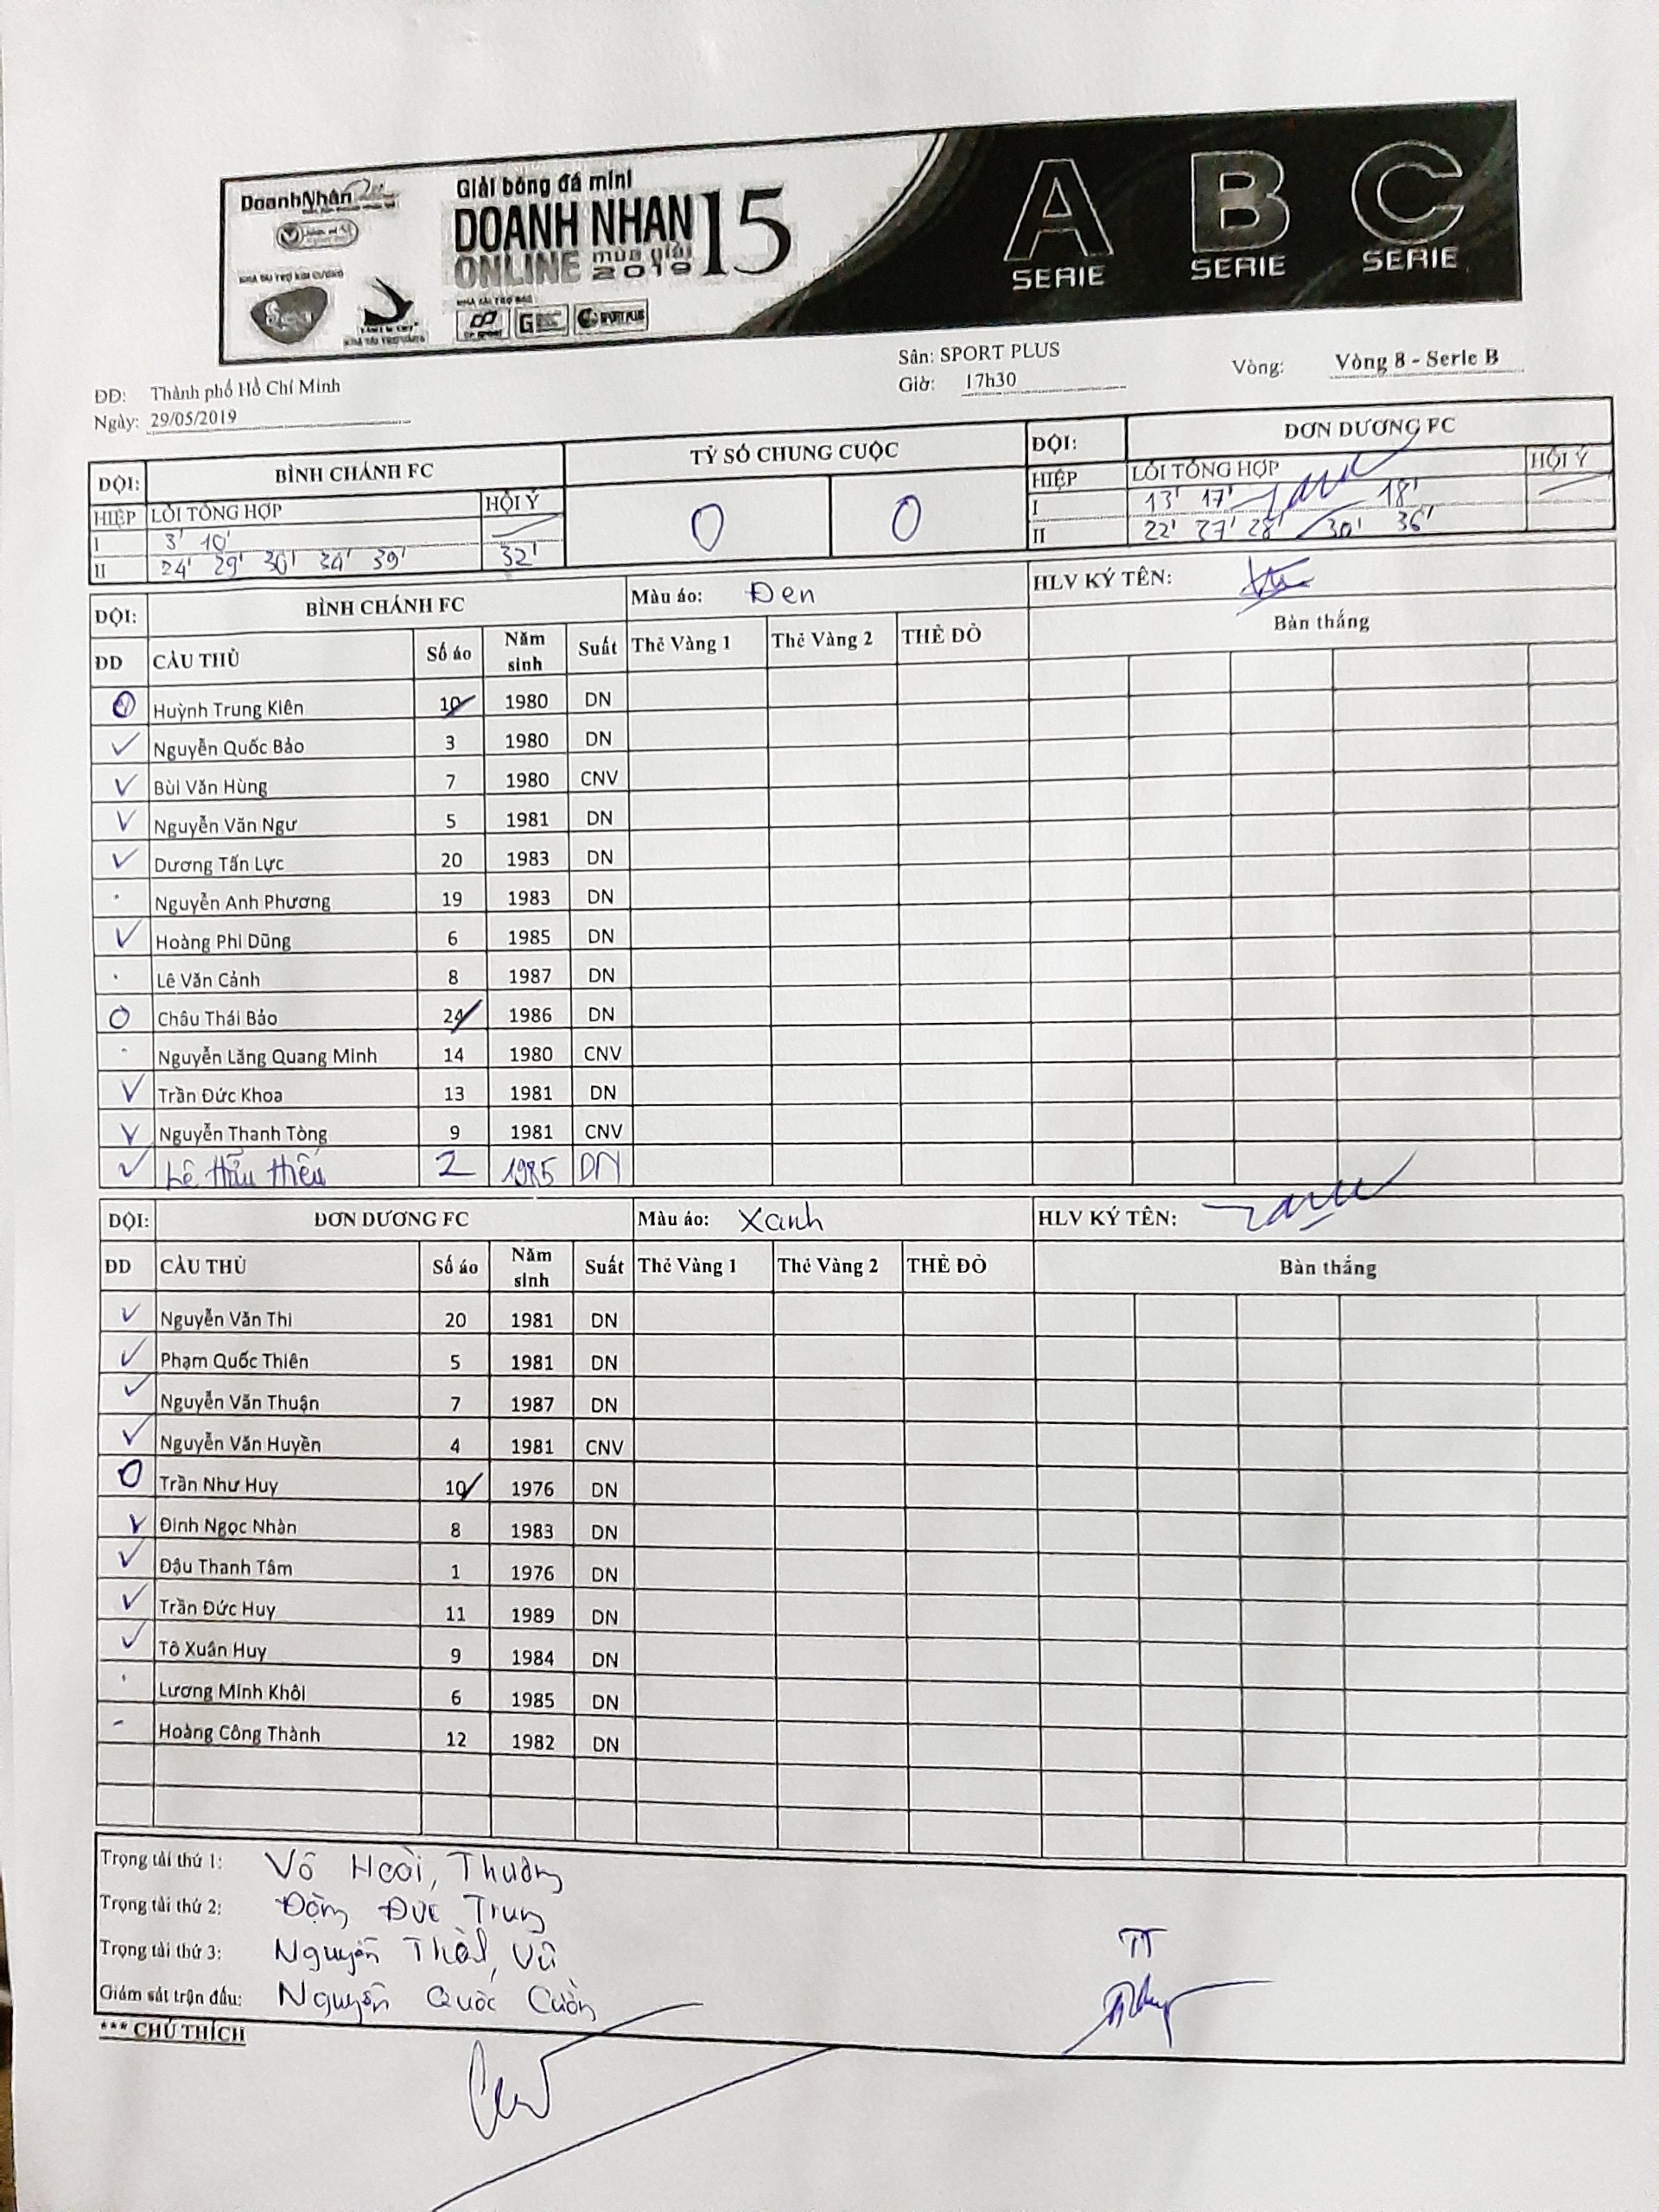 DoanhNhân
Giải bóng đá mini
DOANH NHAN 15
ONLINE mùa giải 2019
A SERIE B SERIE C SERIE
SPORT PLUS
ĐĐ: Thành phố Hồ Chí Minh
Sân: SPORT PLUS
Ngày: 29/05/2019
Giờ: 17h30
Vòng: Vòng 8 - Serie B
ĐỘI: BÌNH CHÁNH FC TỶ SỐ CHUNG CUỘC ĐỘI: ĐƠN DƯƠNG FC
HIỆP LỖI TỔNG HỢP HỘI Ý 0 0 HIỆP LỖI TỔNG HỢP HỘI Ý
I 3' 10' I 13' 17' 18'
II 24' 29' 30' 34' 39' 32' II 22' 27' 28' 30' 36'
ĐỘI: BÌNH CHÁNH FC Màu áo: Đen HLV KÝ TÊN:
DD CẦU THỦ Số áo Năm sinh Suất Thẻ Vàng 1 Thẻ Vàng 2 THẺ ĐỎ Bàn thắng
Huỳnh Trung Kiên 10 1980 DN
Nguyễn Quốc Bảo 3 1980 DN
Bùi Văn Hùng 7 1980 CNV
Nguyễn Văn Ngư 5 1981 DN
Dương Tấn Lực 20 1983 DN
Nguyễn Anh Phương 19 1983 DN
Hoàng Phi Dũng 6 1985 DN
Lê Văn Cảnh 8 1987 DN
Châu Thái Bảo 24 1986 DN
Nguyễn Lăng Quang Minh 14 1980 CNV
Trần Đức Khoa 13 1981 DN
Nguyễn Thanh Tòng 9 1981 CNV
Lê Hữu Hiếu 2 1985 DN
ĐỘI: ĐƠN DƯƠNG FC Màu áo: Xanh HLV KÝ TÊN:
DD CẦU THỦ Số áo Năm sinh Suất Thẻ Vàng 1 Thẻ Vàng 2 THẺ ĐỎ Bàn thắng
Nguyễn Văn Thi 20 1981 DN
Phạm Quốc Thiên 5 1981 DN
Nguyễn Văn Thuận 7 1987 DN
Nguyễn Văn Huyền 4 1981 CNV
Trần Như Huy 10 1976 DN
Đinh Ngọc Nhàn 8 1983 DN
Đậu Thanh Tâm 1 1976 DN
Trần Đức Huy 11 1989 DN
Tô Xuân Huy 9 1984 DN
Lương Minh Khôi 6 1985 DN
Hoàng Công Thành 12 1982 DN
Trọng tài thứ 1: Võ Hoài Thương
Trọng tài thứ 2: Đặng Đức Trung
Trọng tài thứ 3: Nguyễn Thái Vũ
TT
Giám sát trận đấu: Nguyễn Quốc Cường
*** CHÚ THÍCH